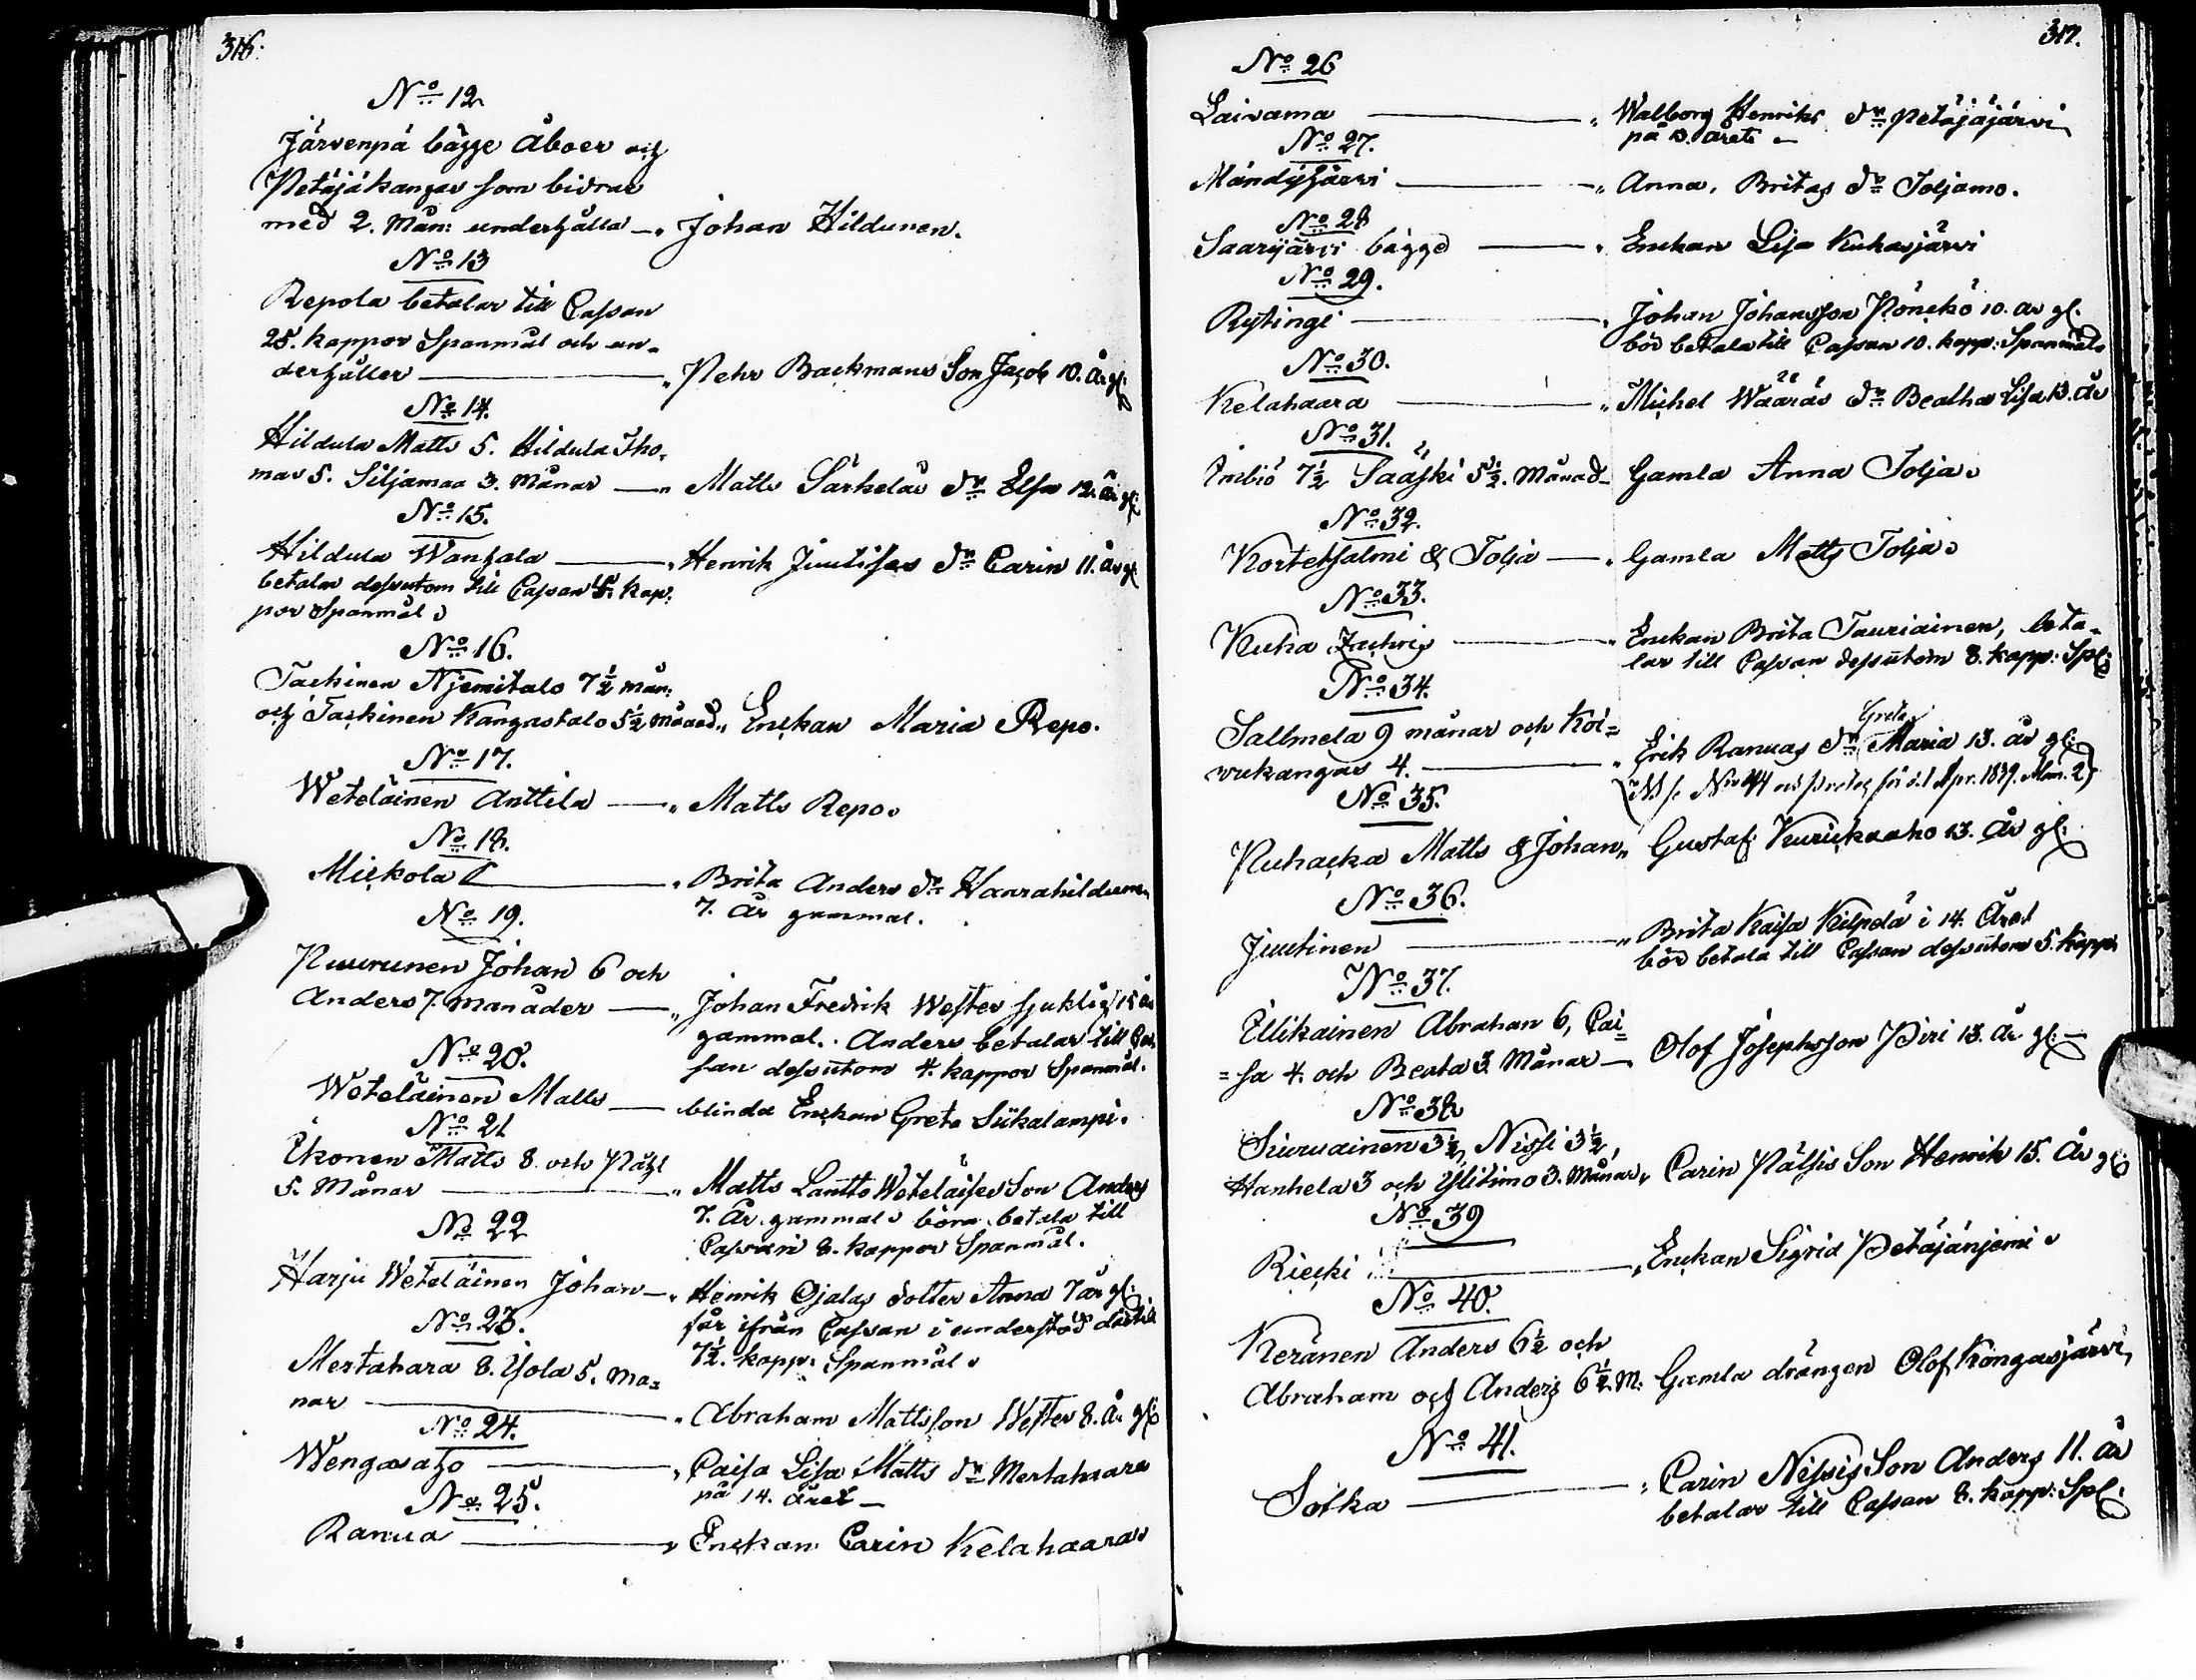 316.
No 12
Järvenpä bägge Åboer och
Petäjäkangas som bidrar
med 2. Mån: underhålla — „ Johan Hildunen.
No 13
Repola betalar till Cassan
25. kappor Spanmål och un-
derhåller — „ Pehr Backmans Son Jacob 10. År gl:
No 14.
Hildula Matts 5. Hildula Tho-
mas 5. Siljamaa 3. Månar — „ Matts Särkeläs dr Elsa 12. År gl:
No 15.
Hildula Wanhala — „ Henrik Juutises dr Carin 11. År gl
betalar dessutom till Cassan 5. kap-
por Spanmål
No 16.
Tackinen Njemitalo 7½ mån:
och Tackinen Kangastalo 5½ månad „ Enckan Maria Repo.
No 17.
Weteläinen Anttila — „ Matts Repo
No 18.
Mickola — „ Brita Anders dr Haarahildunen
7. År gammal.
No 19.
Puurunen Johan 6 och
Anders 7. månader — „ Johan Fredrik Wester sjuklig 15 år
gammal. Anders betalar till Cas-
san dessutom 4. kappor Spanmål.
No 20.
Weteläinen Matts — blinda Enckan Greta Siikalampi.
No 21
Ikonen Matts 8 och Pätzi
5. Månar — „ Matts Lantto Weteläises Son Anders
7. År gammal böra betala till
Cassan 8. kappor Spanmål.
No 22
Harju Weteläinen Johan — „ Henrik Ojalas dotter Anna 7 år gl:
får ifrån Cassan i understöd dertill
7½. kapp: Spanmål
No 23.
Mertahara 8. Yola 5. må-
nar — „ Abraham Mattsson Wester 8. År gl:
No 24.
Wengasaho — „ Caisa Lisa Matts dr Mertahaara
på 14. året —
No 25.
Ranua — „ Enckan Carin Kelahaaras
317.
No 26
Laivama — „ Walborg Henriks dr Petäjäjärvi
på 13. årets —
No 27.
Mändyjärvi — „ Anna, Britas dr Toljamo.
No 28
Saarijärvi bägge — „ Enckan Lisa Kuhasjärvi
No 29.
Rytingi — „ Johan Johansson Pönckö 10. år gl.
bör betala till Cassan 10. kapp: Spanmåls
No 30.
Kelahaara — „ Michel Wääräs dr Beatha Lisa 13. År
No 31.
Imbiö 7½ Sääski 5½. Månad — Gamla Anna Tolja
No 32.
Kortetsalmi & Tolja — „ Gamla Matts Tolja
No 33.
Kuha Zachris — „ Enckan Brita Tauriainen, beta-
lar till Cassan dessutom 8. kapp: Spl:
No 34.
Sallmela 9 månar och Koi-
vukangas 4. — „ Erik Ranuas dr Greta Maria 13. år gl:
No 35.
Ruhacka Matts & Johan „ Gustaf Kurickaaho 13. År gl:
No 36.
Juutinen — „ Brita Kaisa Kilpelä i 14. Året
bör betala till Cassan dessutom 5. kapp:
No 37.
Illikainen Abraham 6, Cai-
=sa 4. och Beata 3. Månar — Olof Josephsson Piri 13. År gl: —
No 38
Siuruainen 3½, Nissi 3½,
Hanhela 3 och Ylitimo 3. Månar „ Carin Pätsis Son Henrik 15. År gl:
No 39
Riecki — „ Enckan Sigrid Petäjänjemi
No 40.
Keränen Anders 6½ och
Abraham och Anders 6½. M: Gamla drängen Olof Kongasjärvi,
No 41.
Sotka — „ Carin Nissis Son Anders 11. År
betalar till Cassan 8. kapp: Spl: